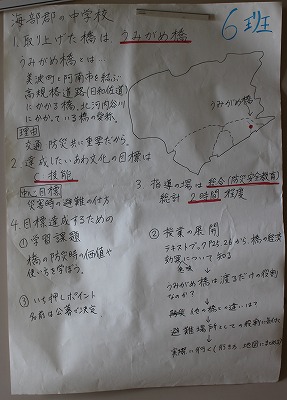 海部郡の中学校
6班
1. 取り上げた橋は うみがめ橋
うみがめ橋とは…
美波町と阿南市を結ぶ
高規格道路(日和佐道)
にかかる橋。北河内谷川
にかかっている橋の愛称。
理由
交通 防災共に重要だから。
うみがめ橋
2. 達成したいあわ文化の目標は
C 技能
中心目標
災害時の避難の仕方
3. 指導の場は 総合(防災安全教育)
総計 2時間 程度
4. 目標達成するための
① 学習課題
橋の防災時の価値や
使い方を学ぼう。
② 授業の展開
テキストブックP25,26から 橋の経済
効果について 知る
うみがめ橋は渡るだけの役割
なのか?
他の橋との違いは?
避難場所としての役割に気付く
実際に行く
③ いち押しポイント
名前は公募で決定。